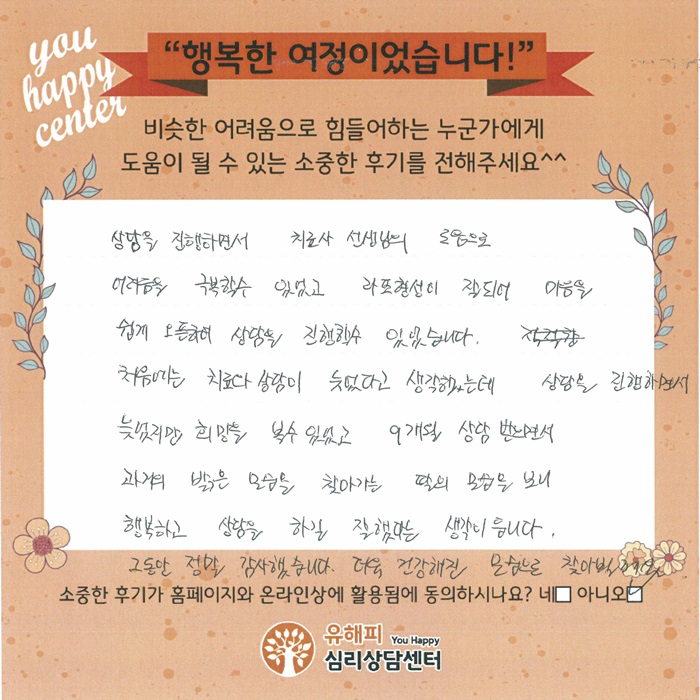 you
happy
center
“행복한 여정이었습니다!”
비슷한 어려움으로 힘들어하는 누군가에게
도움이 될 수 있는 소중한 후기를 전해주세요^^
상담을 진행하면서 치료사 선생님의 도움으로
어려움을 극복할수 있었고 라포형성이 잘되어 마음을
쉽게 오픈하여 상담을 진행할수 있었습니다.
처음에는 치료다 상담이 늦었다고 생각했는데 상담을 진행하면서
늦었지만 희망을 볼수 있었고 9개월 상담 받으면서
과거의 밝은 모습을 찾아가는 딸의 모습을 보니
행복하고 상담을 하길 잘했다는 생각이 듭니다.
그동안 정말 감사했습니다. 더욱 건강해진 모습으로
소중한 후기가 홈페이지와 온라인상에 활용됨에 동의하시나요? 네□ 아니오☑
유해피 You Happy
심리상담센터